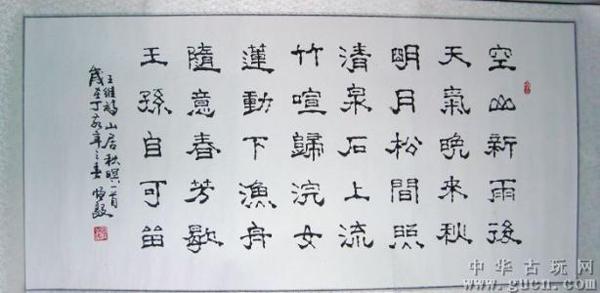 空山新雨後
天氣晚來秋
明月松間照
清泉石上流
竹喧歸浣女
蓮動下漁舟
隨意春芳歇
王孫自可留
王維詩山居秋暝一首
歲在丁亥年之春
中华古玩网
www.gucn.com